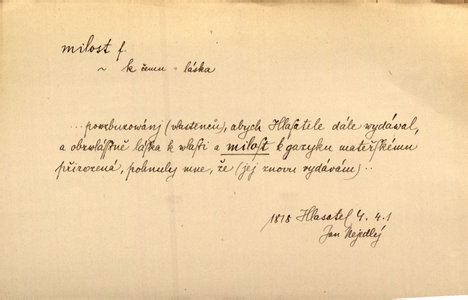 milost f.
~ k čemu = láska
...povzbuzowánj (vlastenců), abych Hlasatele dále wydáwal,
a obzwlásstně láska k wlasti a milost k gazyku mateřskému
přirozená, pohnuly mne, že (jej znovu vydávám)..
1818 Hlasatel 4. 4.1
Jan Nejedlý